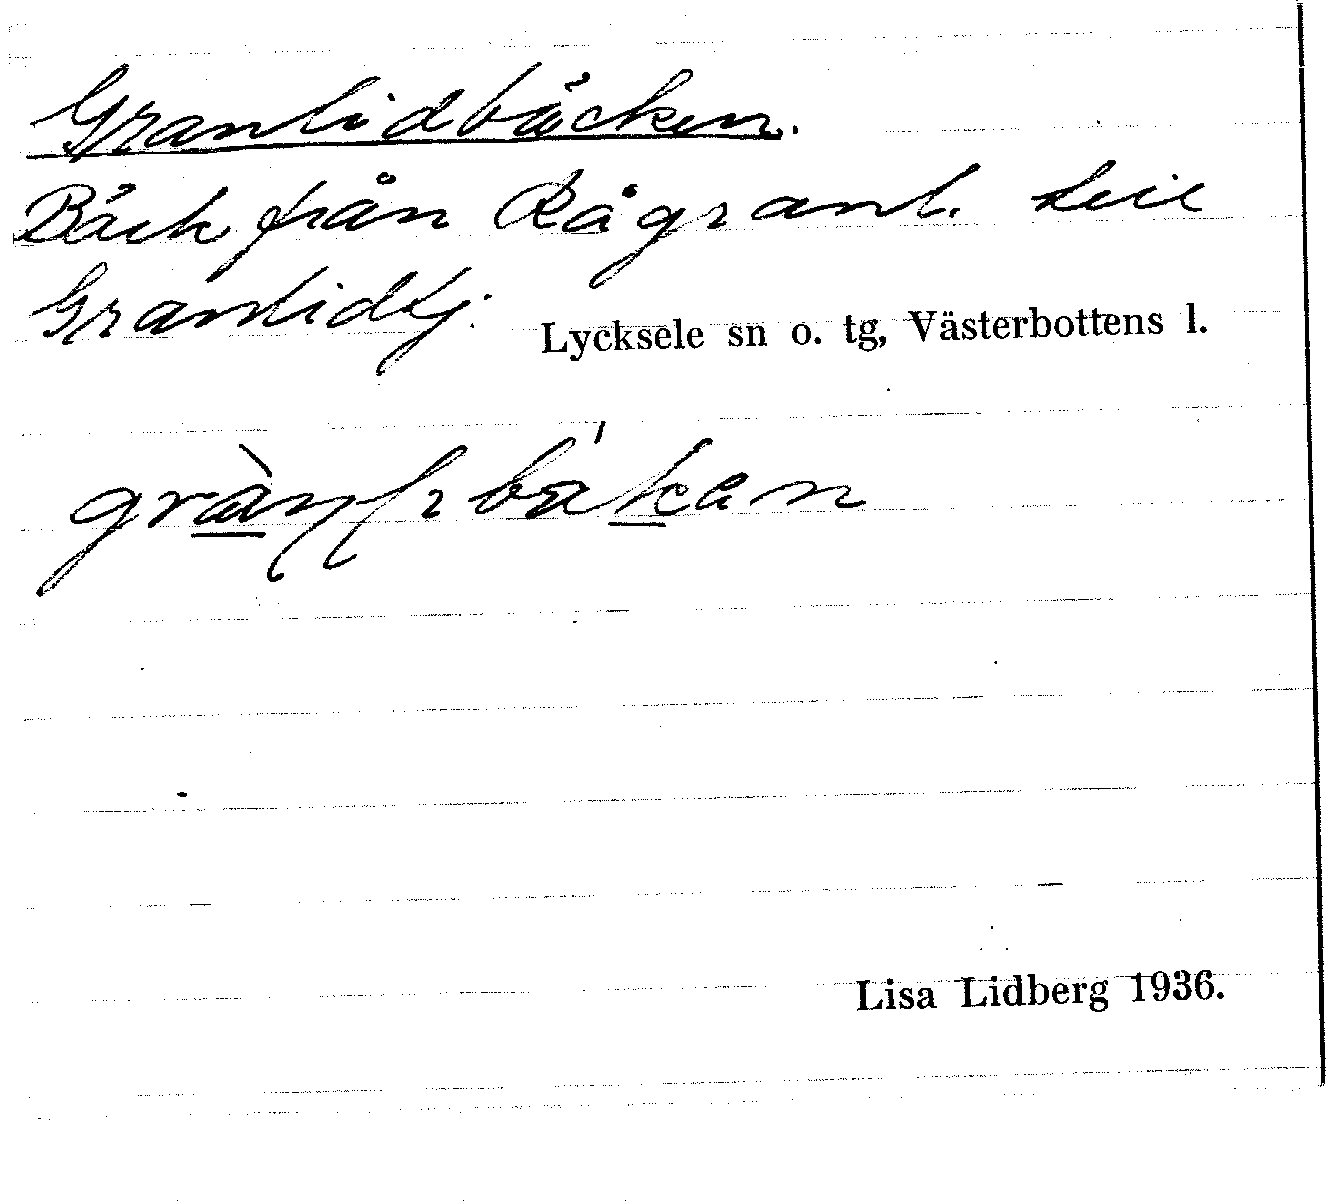 Granlidbäcken.
Bäck från Rågranl. till
Granlidtj.
Lycksele sn o. tg, Västerbottens l.
Lisa Lidberg 1936.